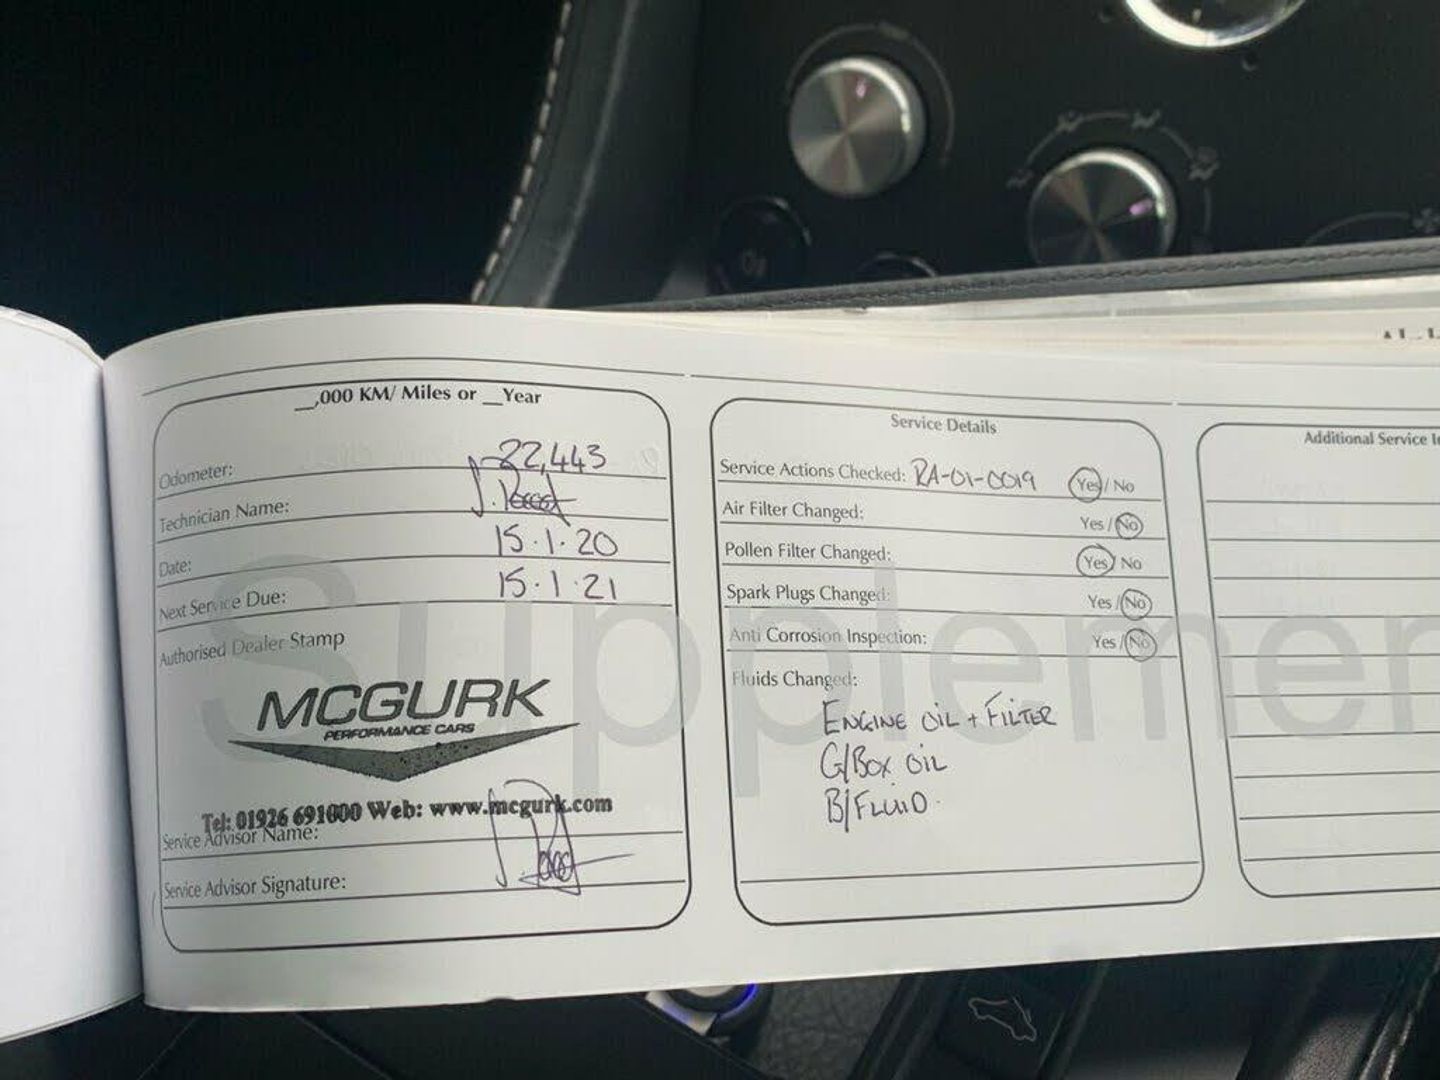 __,000 KM/ Miles or __Year
Odometer: 22,443
Technician Name:
Date: 15.1.20
Next Service Due: 15.1.21
Authorised Dealer Stamp
MCGURK
PERFORMANCE CARS
Tel: 01926 691000 Web: www.mcgurk.com
Service Advisor Name:
Service Advisor Signature:
Service Details
Service Actions Checked: RA-01-0019 Yes / No
Air Filter Changed: Yes / No
Pollen Filter Changed: Yes / No
Spark Plugs Changed: Yes / No
Anti Corrosion Inspection: Yes / No
Fluids Changed:
ENGINE OIL + FILTER
G/BOX OIL
B/FLUID.
Additional Service
Supplemen